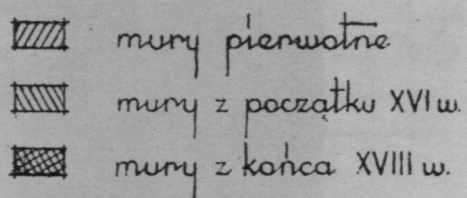 mury pierwotne
mury z początku XVI w.
mury z końca XVIII w.